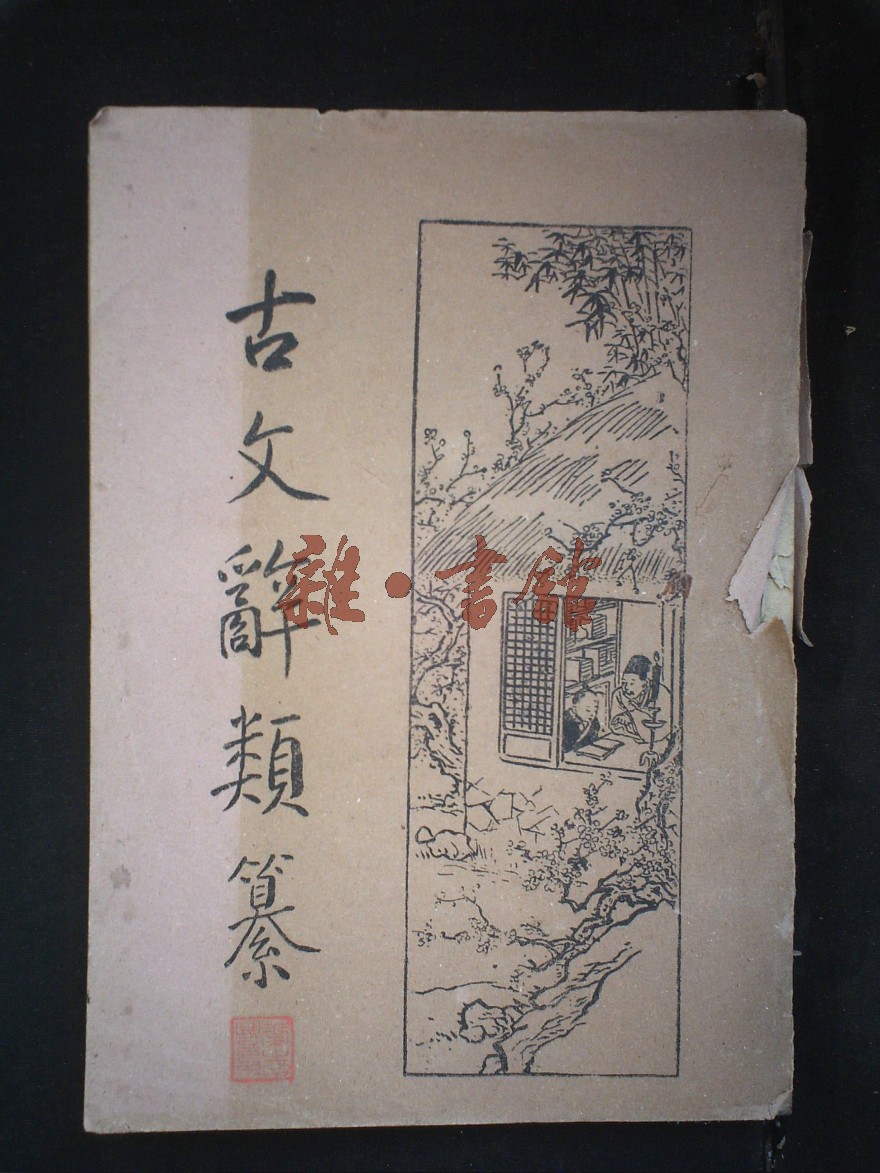 古文辭類纂
雜·書館